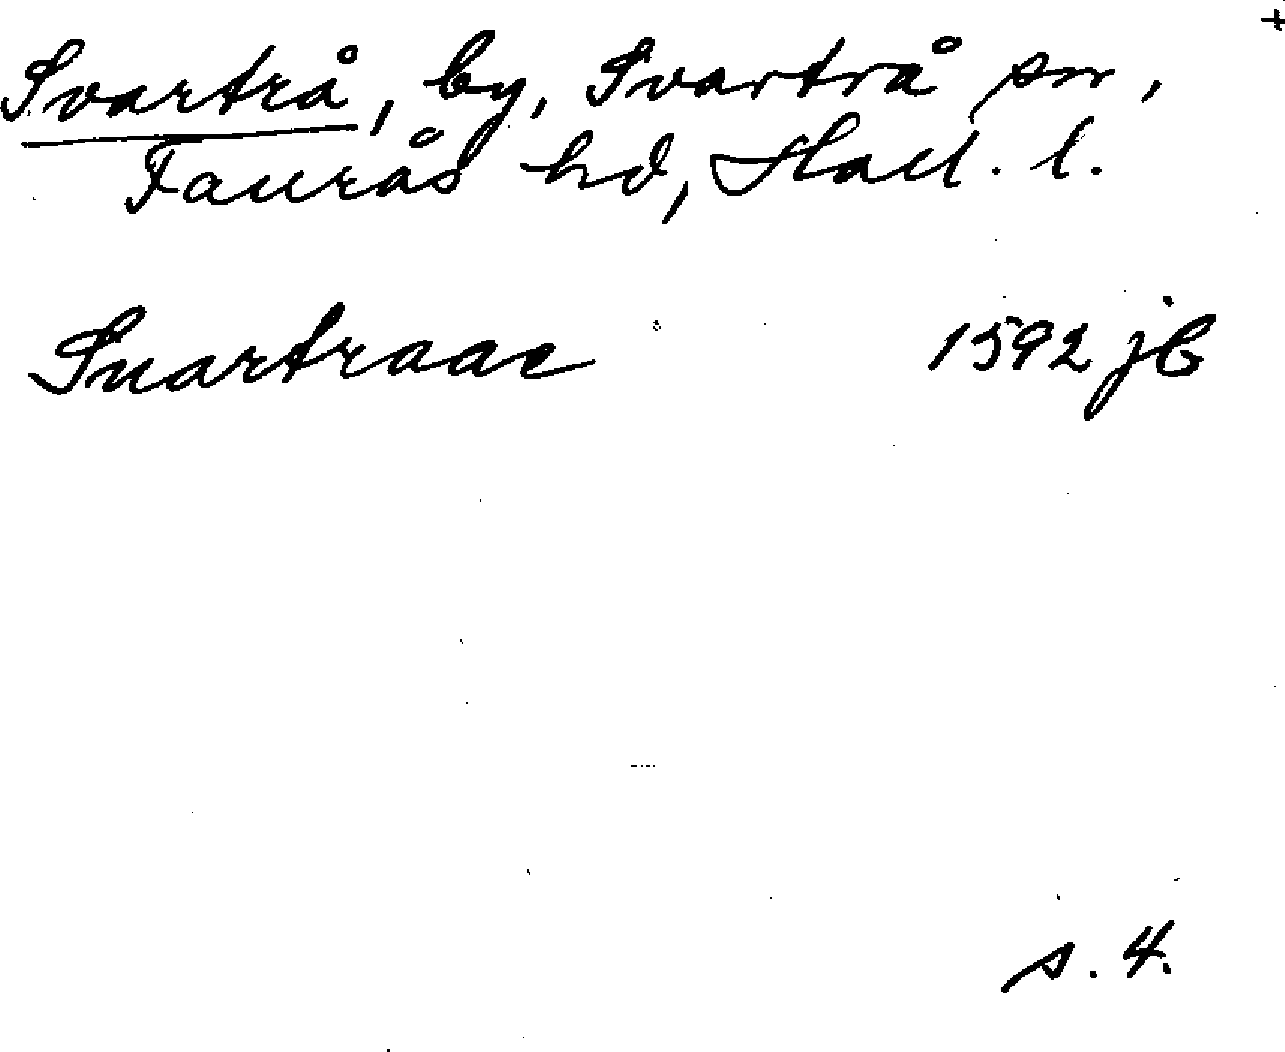 +
Svartrå, by, Svartrå sn,
Faurås hd, Hall. l.
Suartraae 1592 jb
s. 4.